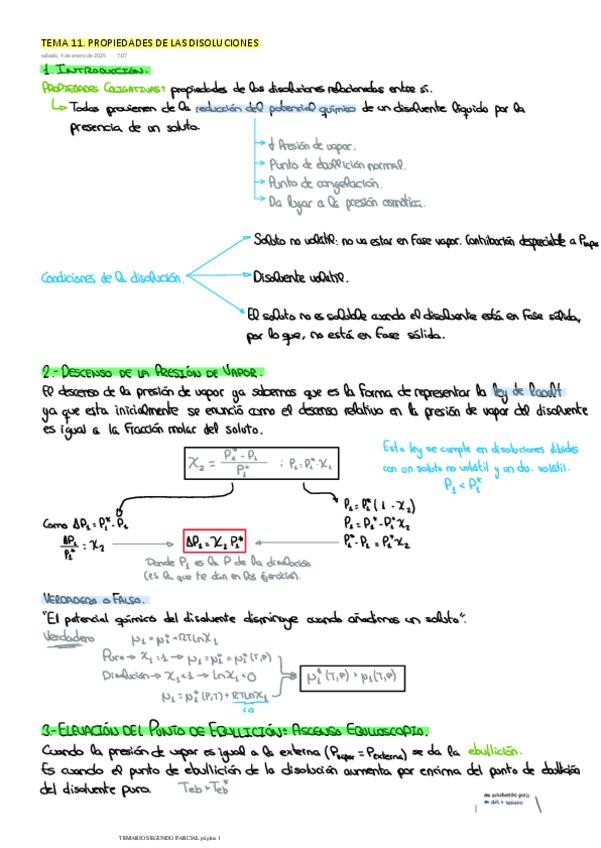 TEMA 11. PROPIEDADES DE LAS DISOLUCIONES
sábado, 4 de enero de 2025 7:07
1. INTRODUCCIÓN.
PROPIEDADES COLIGATIVAS: propiedades de las disoluciones relacionadas entre sí.
↳ Todas provienen de la reducción del potencial químico de un disolvente líquido por la
presencia de un soluto.
↓ Presión de vapor.
Punto de ebullición normal.
Punto de congelación.
Da lugar a la presión osmótica.
Soluto no volátil: no va estar en Fase vapor. Contribución despreciable a Pvapor
Condiciones de la disolución.
Disolvente volátil.
El soluto no es soluble cuando el disolvente está en Fase sólida,
por lo que, no está en Fase sólida.
2.- DESCENSO DE LA PRESIÓN DE VAPOR.
El descenso de la presión de vapor ya sabemos que es la Forma de representar la ley de Raoult
ya que esta inicialmente se enunció como el descenso relativo en la presión de vapor del disolvente
es igual a la Fracción molar del soluto.
Esta ley se cumple en disoluciones diluidas
con un soluto no volátil y un dv. volátil.
P₁ < P₁*
χ₂ = (P₁* - P₁) / P₁* ; P₁ = P₁* · χ₁
Como ΔP₁ = P₁* - P₁
ΔP₁ / P₁* = χ₂
ΔP₁ = χ₂ P₁*
P₁ = P₁* (1 - χ₂)
P₁ = P₁* - P₁* χ₂
P₁* - P₁ = P₁* χ₂
Donde P₁ es la P de la disolución
(es la que te dan en los ejercicios).
VERDADERO O FALSO.
"El potencial químico del disolvente disminuye cuando añadimos un soluto".
Verdadero
μ₁ = μ₁* + RTLnχ₁
Puro → χ₁ = 1 → μ₁ = μ₁* = μ₁* (T,P)
Disolución → χ₁ < 1 → lnχ₁ < 0
μ₁ = μ₁* (P,T) + RTLnχ₁
<0
μ₁* (T,P) > μ₁ (T,P)
3.- ELEVACIÓN DEL PUNTO DE EBULLICIÓN: ASCENSO EBULLOSCOPIO.
Cuando la presión de vapor es igual a la externa (Pvapor = Pexterna) se da la ebullición.
Es cuando el punto de ebullición de la disolución aumenta por encima del punto de ebullición
del disolvente puro. Teb > Teb*
TEMARIO SEGUNDO PARCIAL página 1